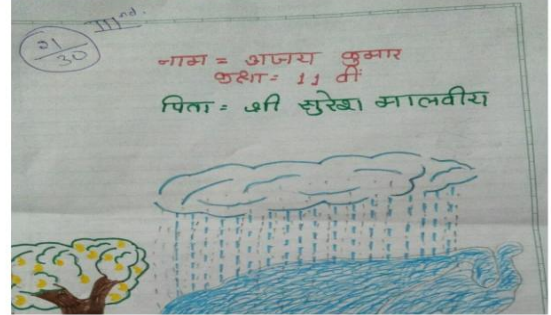 IIInd.
21/30
नाम = अजय कुमार
कक्षा = 11 वीं
पिता = श्री सुरेश मालवीय